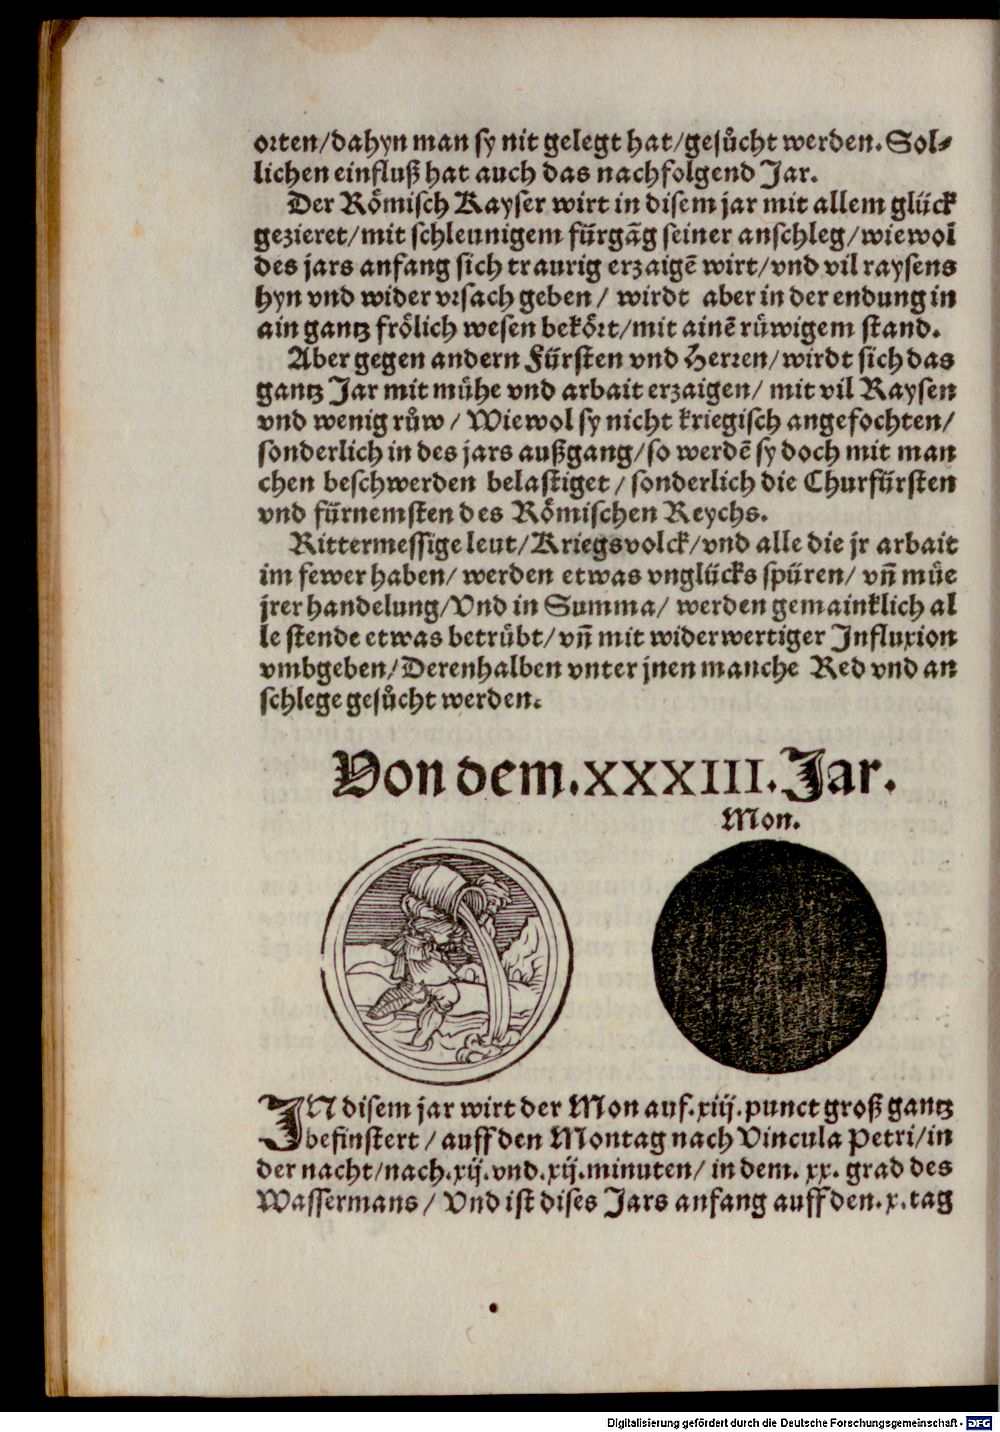 orten/dahyn man sy nit gelegt hat/gesůcht werden. Sol⸗
lichen einfluß hat auch das nachfolgend Jar.
Der Rȍmisch Kayser wirt in disem jar mit allem glück
gezieret/mit schleunigem fürgãg seiner anschleg/wiewol
des jars anfang sich traurig erzaigẽ wirt/vnd vil raysens
hyn vnd wider vrsach geben/ wirdt aber in der endung in
ain gantz frölich wesen bekört/mit ainẽ rüwigem stand.
Aber gegen andern Fürsten vnd Herren/wirdt sich das
gantz Jar mit mühe vnd arbait erzaigen/ mit vil Raysen
vnd wenig růw / Wiewol sy nicht kriegisch angefochten/
sonderlich in des jars außgang/so werdẽ sy doch mit man
chen beschwerden belastiget / sonderlich die Churfürsten
vnd fürnemsten des Römischen Reychs.
Rittermessige leut/Kriegsvolck/vnd alle die jr arbait
im fewer haben/ werden etwas vnglücks spüren/ vñ müe
jrer handelung/Vnd in Summa/ werden gemainklich al
le stende etwas betrübt/vñ mit widerwertiger Influxion
vmbgeben/Derenhalben vnter jnen manche Red vnd an
schlege gesůcht werden.
Von dem.XXXIII.Jar.
Mon.
IN disem jar wirt der Mon auf.xiij.punct groß gantz
befinstert / auff den Montag nach Vincula Petri/in
der nacht/nach.xij.vnd.xij.minuten/ in dem. xx. grad des
Wassermans / Vnd ist dises Jars anfang auff den.x.tag
Digitalisierung gefördert durch die Deutsche Forschungsgemeinschaft - DFG